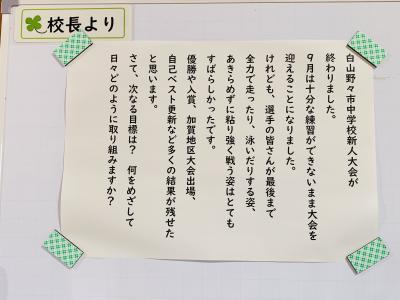 校長より
白山野々市中学校新人大会が
終わりました。
９月は十分な練習ができないまま大会を
迎えることになりました。
けれども、選手の皆さんが最後まで
全力で走ったり、泳いだりする姿、
あきらめずに粘り強く戦う姿はとても
すばらしかったです。
優勝や入賞、加賀地区大会出場、
自己ベスト更新など多くの結果が残せた
と思います。
さて、次なる目標は？　何をめざして
日々どのように取り組みますか？